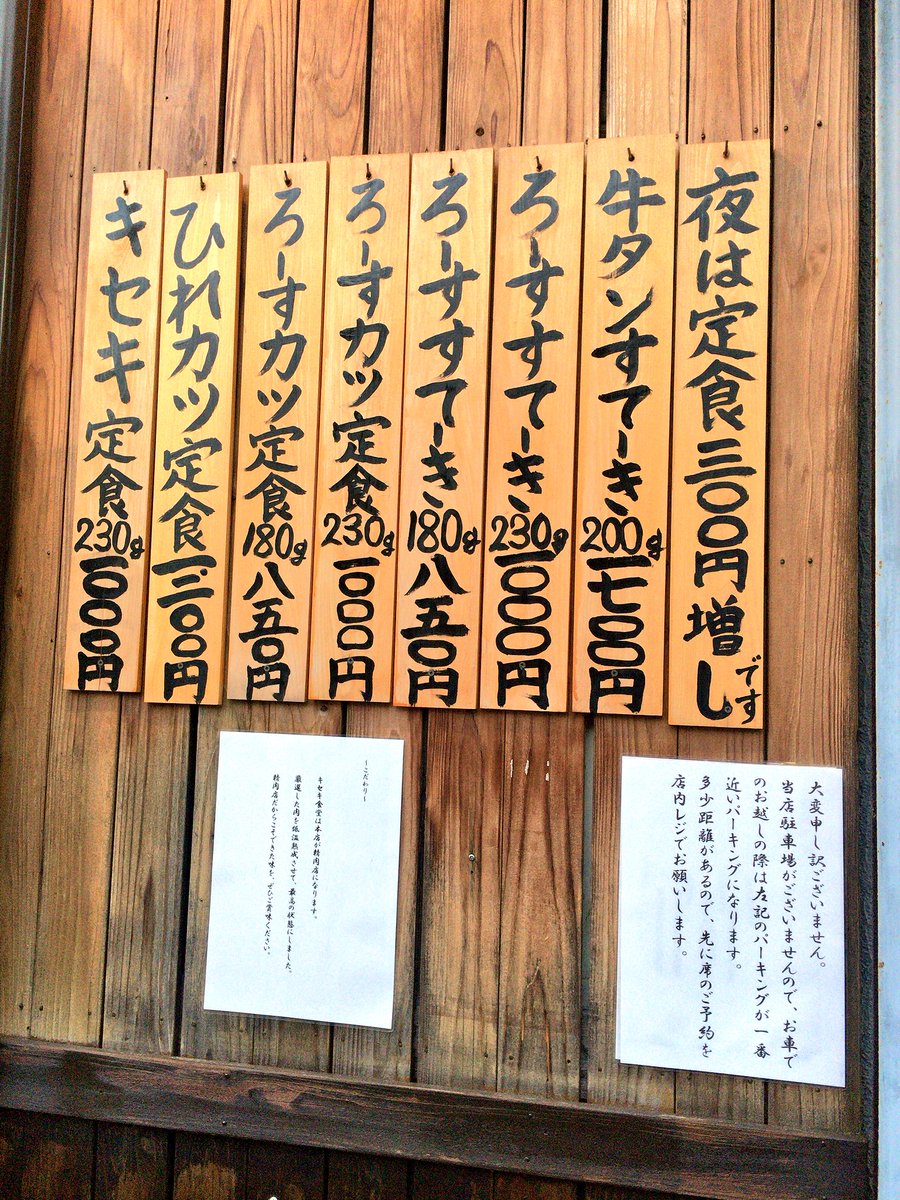 夜は定食三〇〇円増しです
牛タンすてーき200g一七〇〇円
ろーすすてーき230g一〇〇〇円
ろーすすてーき180g八五〇円
ろーすカツ定食230g一〇〇〇円
ろーすカツ定食180g八五〇円
ひれカツ定食一三〇〇円
キセキ定食230g一〇〇〇円
大変申し訳ございません。
当店駐車場がございませんので、お車で
のお越しの際は左記のパーキングが一番
近いパーキングになります。
多少距離があるので、先に席のご予約を
店内レジでお願いします。
～こだわり～
キセキ食堂は本店が精肉店になります。
厳選した肉を低温熟成させて、最高の状態にしました。
精肉店だからこそできた味を、ぜひご賞味ください。